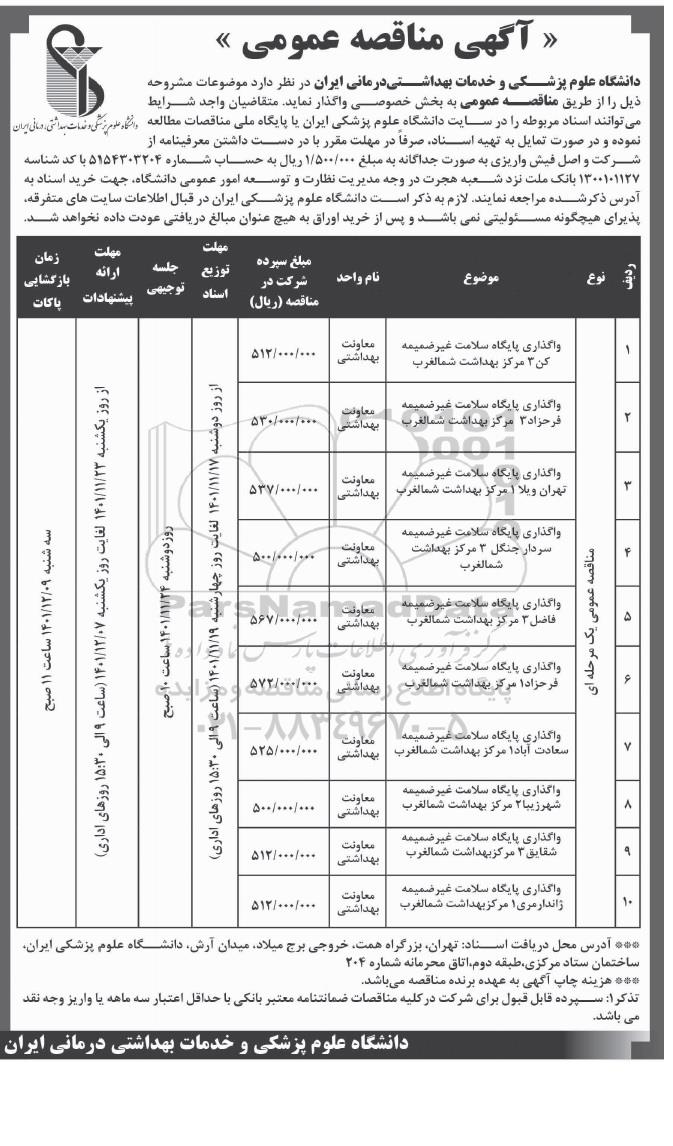 « آگهی مناقصه عمومی »
دانشگاه علوم پزشکی و خدمات بهداشتی، درمانی ایران
دانشگاه علوم پزشکی و خدمات بهداشتی‌درمانی ایران در نظر دارد موضوعات مشروحه
ذیل را از طریق مناقصه عمومی به بخش خصوصی واگذار نماید. متقاضیان واجد شرایط
می‌توانند اسناد مربوطه را در سایت دانشگاه علوم پزشکی ایران یا پایگاه ملی مناقصات مطالعه
نموده و در صورت تمایل به تهیه اسناد، صرفاً در مهلت مقرر با در دست داشتن معرفینامه از
شرکت و اصل فیش واریزی به صورت جداگانه به مبلغ ۱/۵۰۰/۰۰۰ ریال به حساب شماره ۵۱۵۴۳۰۳۲۰۴ با کد شناسه
۱۳۰۰۱۰۱۱۲۷ بانک ملت نزد شعبه هجرت در وجه مدیریت نظارت و توسعه امور عمومی دانشگاه، جهت خرید اسناد به
آدرس ذکرشده مراجعه نمایند. لازم به ذکر است دانشگاه علوم پزشکی ایران در قبال اطلاعات سایت های متفرقه،
پذیرای هیچگونه مسئولیتی نمی باشد و پس از خرید اوراق به هیچ عنوان مبالغ دریافتی عودت داده نخواهد شد.
ردیف نوع موضوع نام واحد مبلغ سپرده شرکت در مناقصه (ریال) مهلت توزیع اسناد جلسه توجیهی مهلت ارائه پیشنهادات زمان بازگشایی پاکات
مناقصه عمومی یک مرحله ای
۱ واگذاری پایگاه سلامت غیرضمیمه کن۳ مرکز بهداشت شمالغرب معاونت بهداشتی ۵۱۲/۰۰۰/۰۰۰
۲ واگذاری پایگاه سلامت غیرضمیمه فرحزاد۳ مرکز بهداشت شمالغرب معاونت بهداشتی ۵۳۰/۰۰۰/۰۰۰
۳ واگذاری پایگاه سلامت غیرضمیمه تهران ویلا ۱ مرکز بهداشت شمالغرب معاونت بهداشتی ۵۳۷/۰۰۰/۰۰۰
۴ واگذاری پایگاه سلامت غیرضمیمه سردار جنگل ۳ مرکز بهداشت شمالغرب معاونت بهداشتی ۵۰۰/۰۰۰/۰۰۰
۵ واگذاری پایگاه سلامت غیرضمیمه فاضل۳ مرکز بهداشت شمالغرب معاونت بهداشتی ۵۶۷/۰۰۰/۰۰۰
۶ واگذاری پایگاه سلامت غیرضمیمه فرحزاد۱ مرکز بهداشت شمالغرب معاونت بهداشتی ۵۷۲/۰۰۰/۰۰۰
۷ واگذاری پایگاه سلامت غیرضمیمه سعادت آباد۱ مرکز بهداشت شمالغرب معاونت بهداشتی ۵۲۵/۰۰۰/۰۰۰
۸ واگذاری پایگاه سلامت غیرضمیمه شهرزیبا۲ مرکز بهداشت شمالغرب معاونت بهداشتی ۵۰۰/۰۰۰/۰۰۰
۹ واگذاری پایگاه سلامت غیرضمیمه شقایق۳ مرکزبهداشت شمالغرب معاونت بهداشتی ۵۱۲/۰۰۰/۰۰۰
۱۰ واگذاری پایگاه سلامت غیرضمیمه ژاندارمری۱ مرکزبهداشت شمالغرب معاونت بهداشتی ۵۱۲/۰۰۰/۰۰۰
از روز دوشنبه ۱۴۰۱/۱۱/۱۷ لغایت روز چهارشنبه ۱۴۰۱/۱۱/۱۹ (ساعت ۹ الی ۱۵:۳۰ روزهای اداری)
روزدوشنبه ۱۴۰۱/۱۱/۲۴ ساعت ۱۰ صبح
از روز یکشنبه ۱۴۰۱/۱۱/۲۳ لغایت روز یکشنبه ۱۴۰۱/۱۲/۰۷ (ساعت ۹ الی ۱۵:۳۰ روزهای اداری)
سه شنبه ۱۴۰۱/۱۲/۰۹ ساعت ۱۱ صبح
ParsNamadData
مرکز فرآوری اطلاعات پارس نماد داده ها
پایگاه اطلاع رسانی مناقصه و مزایده
۰۲۱-۸۸۳۴۹۶۷۰-۵
*** آدرس محل دریافت اسناد: تهران، بزرگراه همت، خروجی برج میلاد، میدان آرش، دانشگاه علوم پزشکی ایران،
ساختمان ستاد مرکزی،طبقه دوم،اتاق محرمانه شماره ۲۰۴
*** هزینه چاپ آگهی به عهده برنده مناقصه می‌باشد.
تذکر۱: سپرده قابل قبول برای شرکت درکلیه مناقصات ضمانتنامه معتبر بانکی با حداقل اعتبار سه ماهه یا واریز وجه نقد
می باشد.
دانشگاه علوم پزشکی و خدمات بهداشتی درمانی ایران